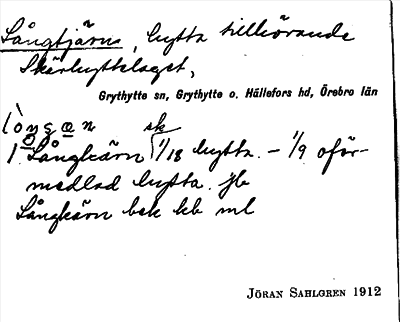 Långtjärn, hytta tillhörande
Skärhyttelaget,
Grythytte sn, Grythytte o. Hällefors hd, Örebro län
sk
1 Långkärn 1/18 hytta. – 1/9 oför-
medlad hytta. jb
Långkärn bsk kb ml
Jöran Sahlgren 1912